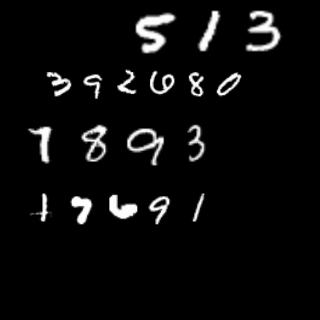 5 1 3
3 9 2 6 8 0
7 8 9 3
1 7 6 9 1